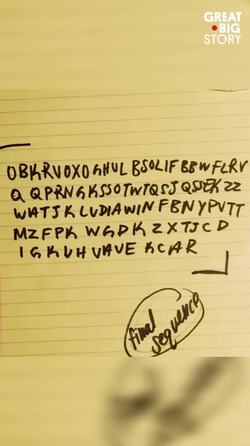 GREAT
BIG
STORY
OBKRUOXOGHULBSOLIFBBWFLRV
QQPRNGKSSOTWTQSJQSSEKZZ
WATJKLUDIAWINFBNYPVTT
MZFPKWGDKZXTJCD
IGKUHUAUEKCAR
final
sequence